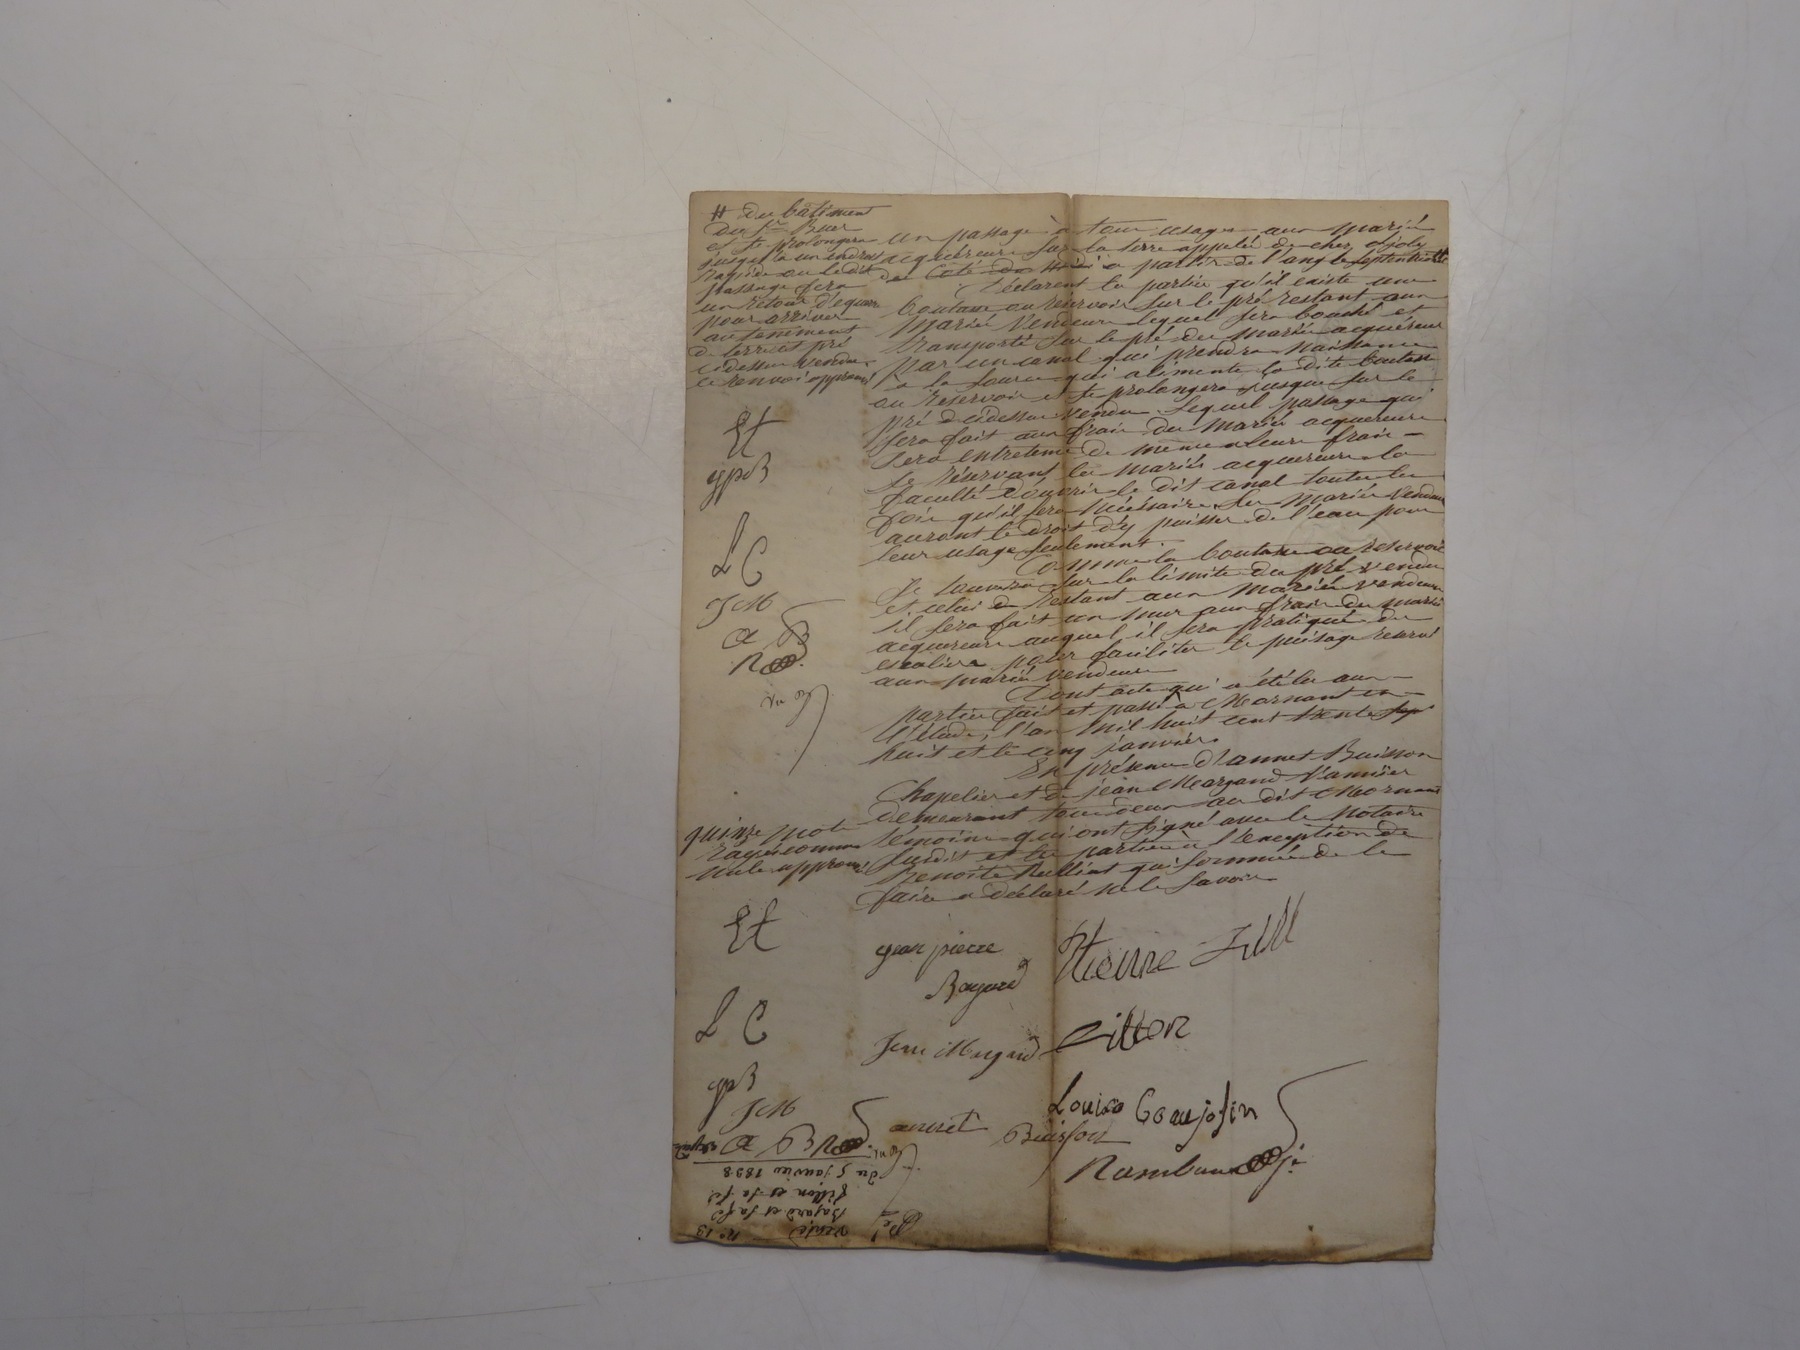 # du bâtiment
du Sr Buer
et se prolongera
jusqu'à un endroit
où le dit
passage fera
un retour d'équerre
pour arriver
au tenement
de terre et pré
cidessus vendu.
ce renvoi approuvé
Et
jpB
LC
JM
a B
un passage à tous usages aux mariés
acquéreurs sur la terre appelée de chez Joly
du Côté du Midi à partir de l'angle septentrional #
Déclarent les parties qu'il existe une
boutasse ou reservoir sur le pré restant aux
Mariés Vendeurs lequel sera bouché et
transporté sur le pré des mariés acquéreurs
par un canal qui prendra naissance
à la source qui alimente la dite boutasse
ou Reservoir et se prolongera jusque sur le
pré cidessus vendu. Lequel passage qui
sera fait aux frais des mariés acquereurs
sera entretenu de même à leurs frais -
se Réservant les mariés acquereurs la
faculté d'ouvrir le dit canal toutes les
fois qu'il sera nécessaire. Les Mariés Vendeurs
auront le droit d'y puiser de l'eau pour
leur usage seulement.
Comme la boutasse ou reservoir
se trouvera sur la limite du pré vendu
et celui restant aux mariés vendeurs
il sera fait un mur aux frais des mariés
acquereurs auquel il sera pratiqué des
escaliers pour faciliter le puisage reservé
aux mariés vendeurs
Dont acte qui a été lu aux
parties fait et passé à Mornant en
l'étude, l'an mil huit cent trente sept
huit et le cinq janvier.
En présence d'annet Buisson
Chapelier et de jean Margand Vannier
demeurant tous deux au dit Mornant
témoins qui ont signé avec le Notaire
susdit et les parties à l'exception de
Benoite Rulliat qui sommée de le
faire a déclaré ne le savoir
quinze mots
rayés comme
nuls approuvé
Et
L C
jpB
JM
a B
jean pierre
Bayard
Etienne
Jean Margand
Fillon
Louise Goujolin
annet Buisson
Rambaud
n° 13
Vente
Bayard et sa fe
fillon et sa fe
du 5 janvier 1838